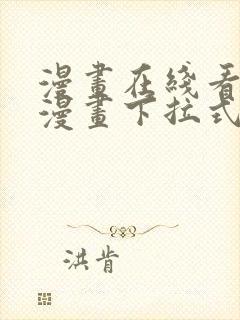 漫畫在綫看
漫畫下拉式
洪肯